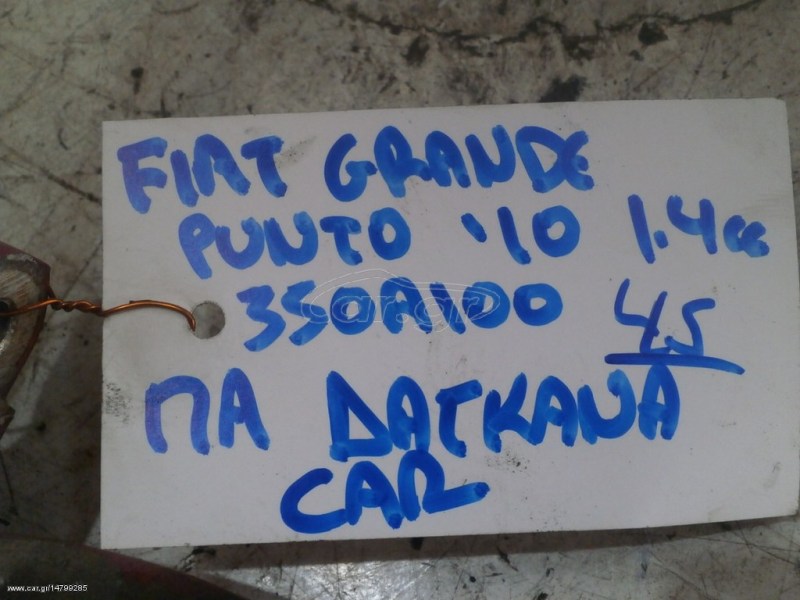 FIAT GRANDE
PUNTO '10 1.4cc
350A100 45
ΠΑ ΔΑΓΚΑΝΑ
CAR
car.gr
www.car.gr/14799285